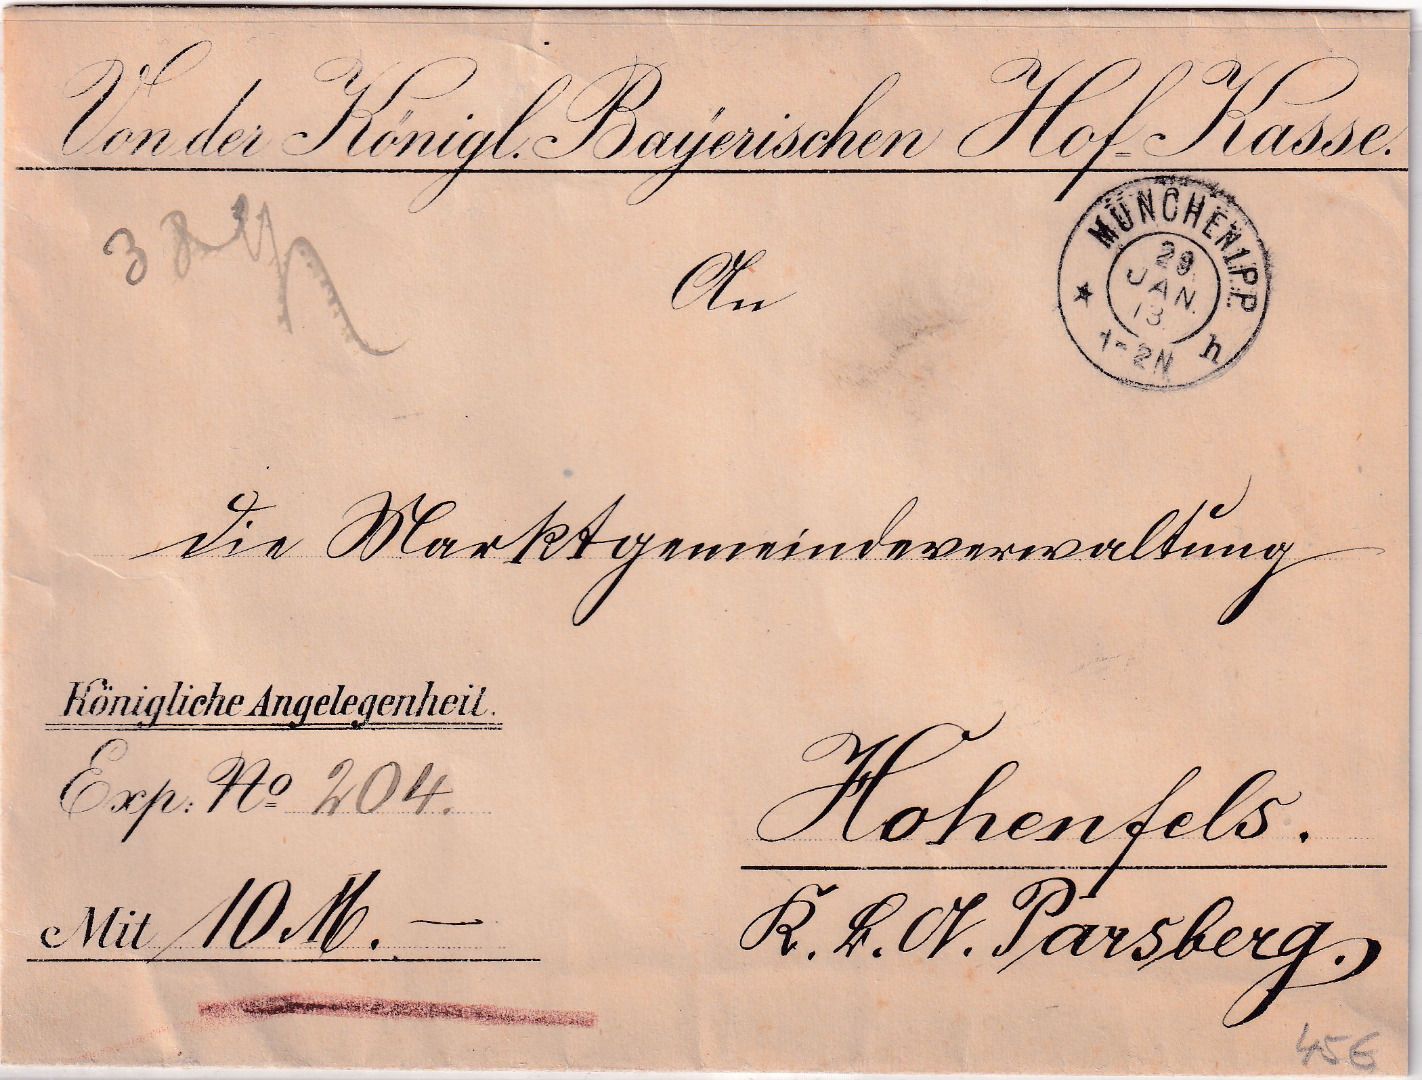 Von der Königl. Bayerischen Hof-Kasse.
MÜNCHEN 1.P.P.
29
JAN.
13.
1-2N h
3
An
die Marktgemeindeverwaltung
Königliche Angelegenheit.
Exp: No 204.
Mit 10 M. —
Hohenfels.
K. B. A. Parsberg.
45€